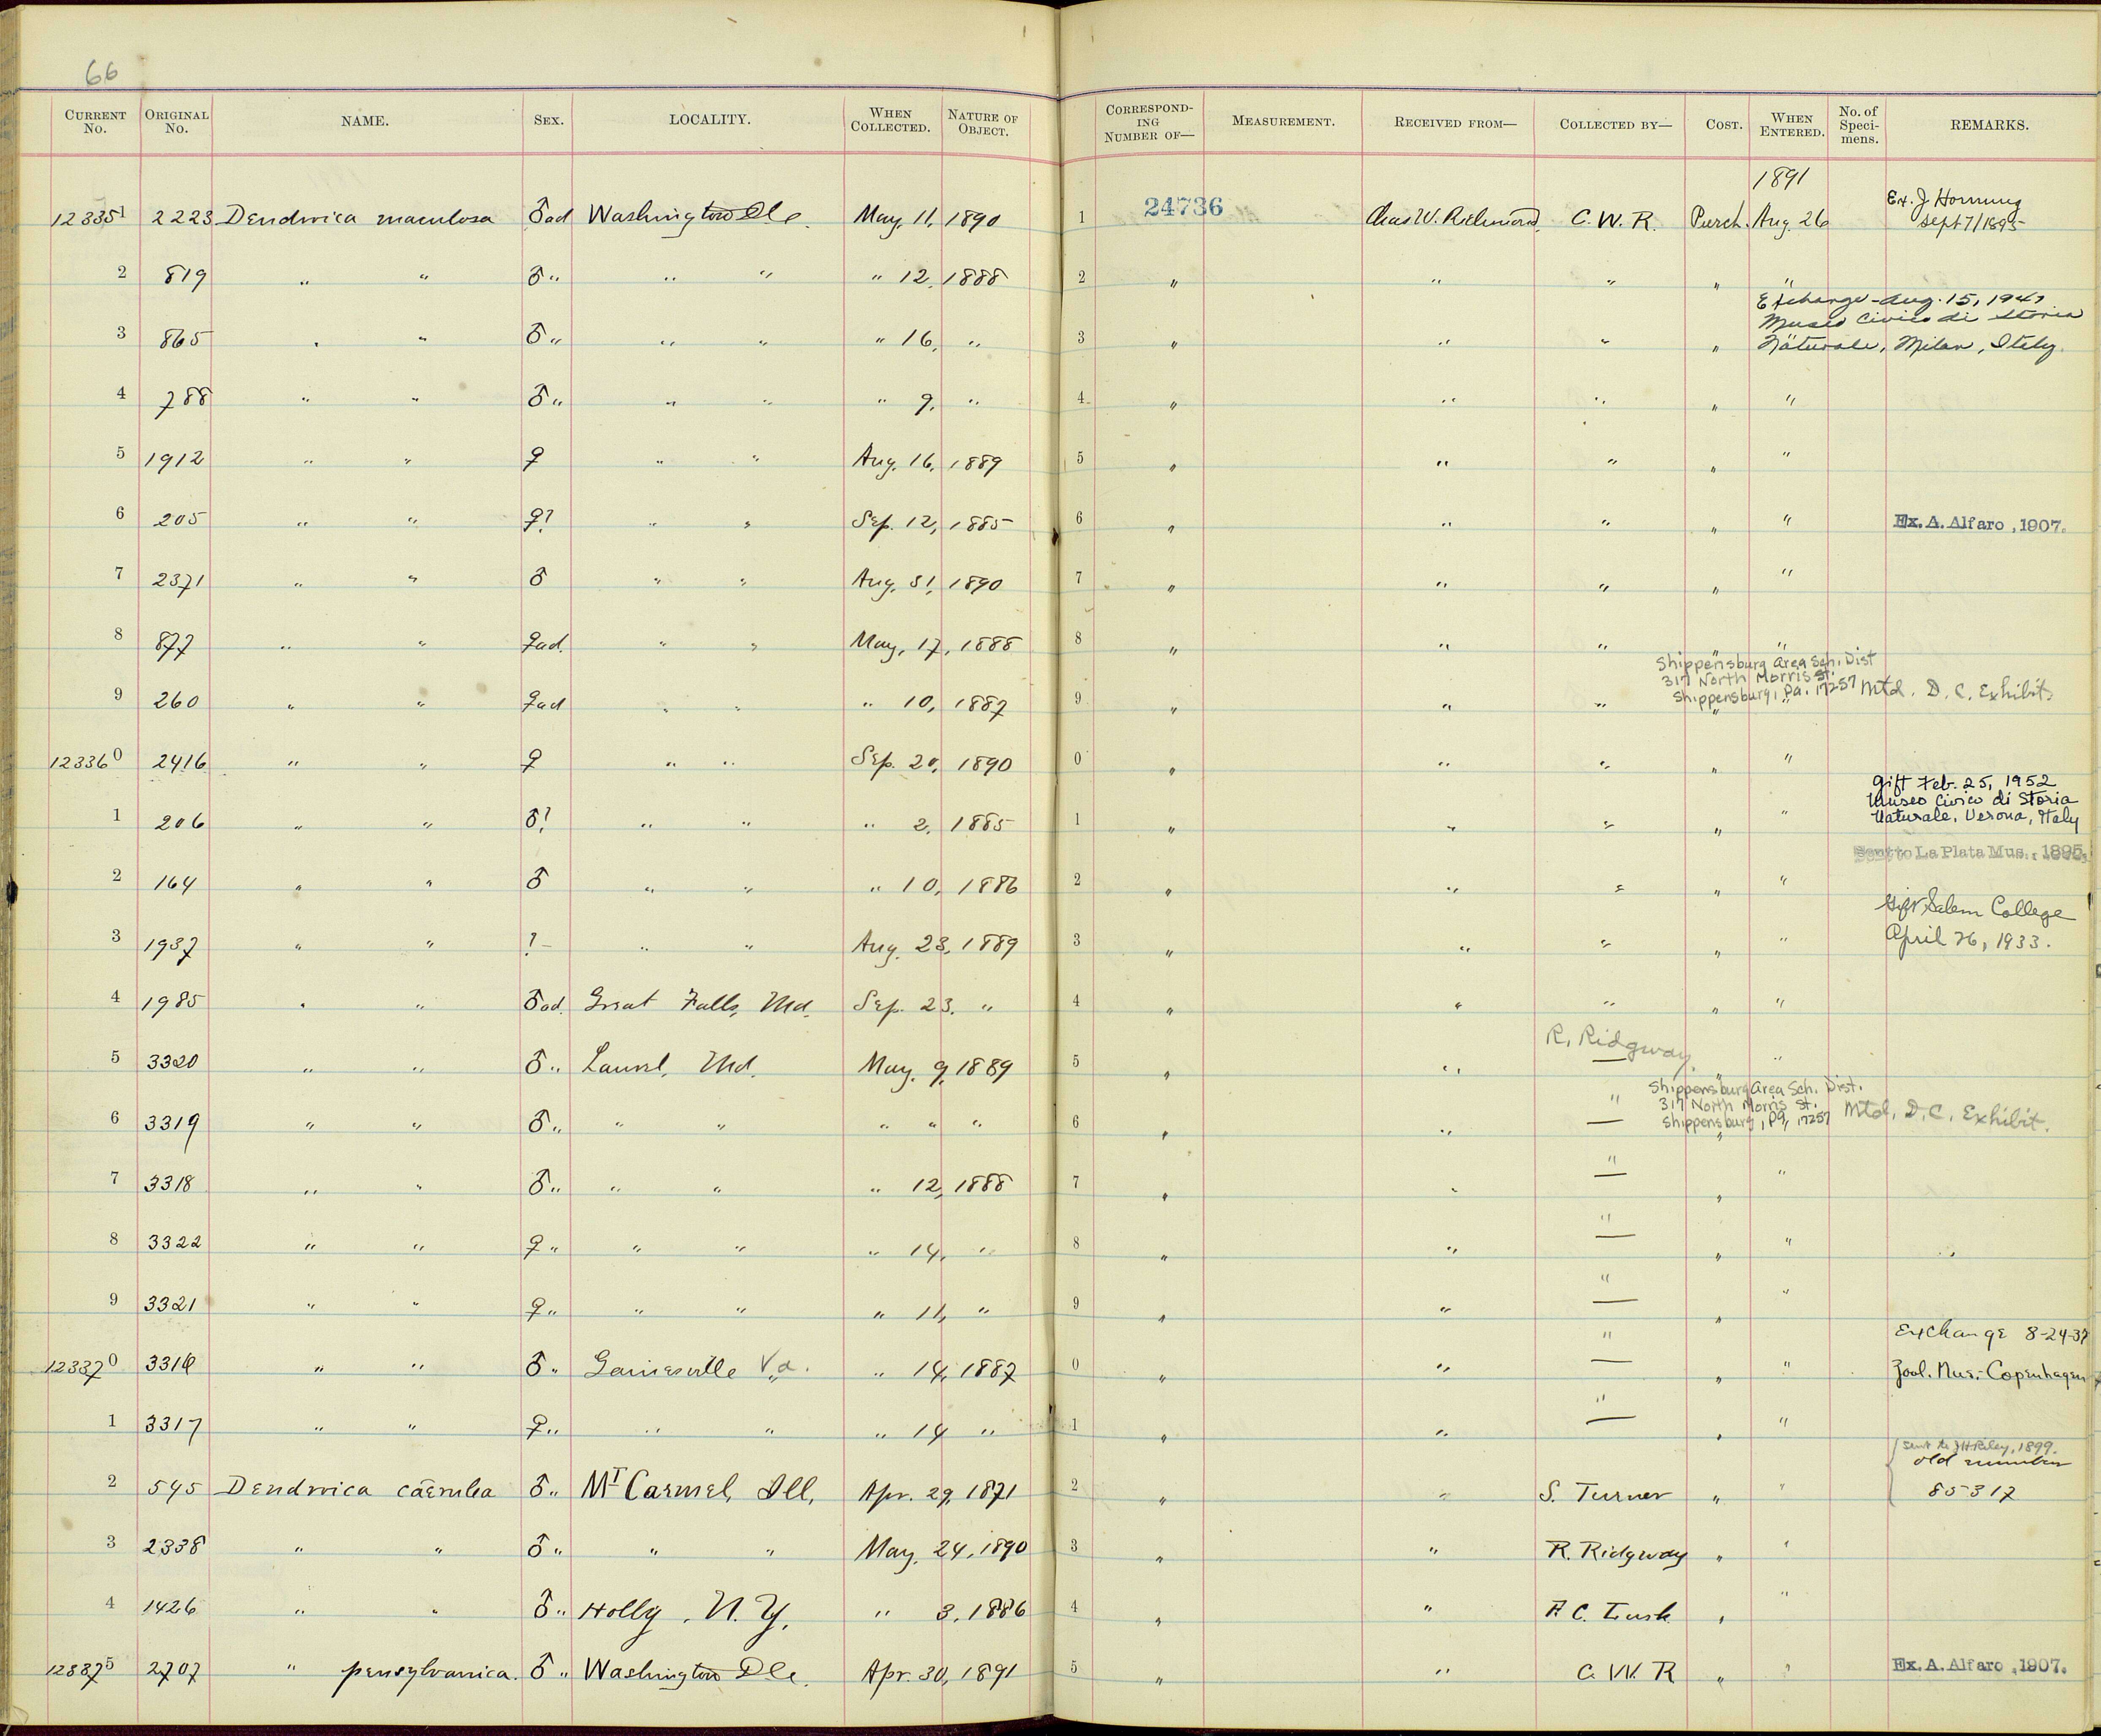 66
CURRENT No. ORIGINAL No. NAME. SEX. LOCALITY. WHEN COLLECTED. NATURE OF OBJECT. CORRESPOND-ING NUMBER OF— MEASUREMENT. RECEIVED FROM— COLLECTED BY— COST. WHEN ENTERED. No. of Speci-mens. REMARKS.
1891
12335 1 2223 Dendroica maculosa ♂ad Washington D.C. May, 11, 1890 1 24736 Chas W. Richmond. C. W. R. Purch. Aug. 26 Ex. J Hornung Sept 7/1895
2 819 " " ♂ " " " " 12, 1888 2 " " " " "
Exchange - Aug. 15, 1947
Museo Civico di Storia
3 865 " " ♂ " " " " 16, " 3 " " " " Naturale, Milan, Italy.
4 788 " " ♂ " " " " 9, " 4 " " " " "
5 1912 " " ♀ " " Aug. 16, 1889 5 " " " " "
6 205 " " ♀? " " Sep. 12, 1885 6 " " " " " Ex. A. Alfaro, 1907.
7 2371 " " ♂ " " Aug. 31, 1890 7 " " " " "
8 877 " " ♀ad. " " May, 17, 1888 8 " " " " "
Shippensburg Area Sch. Dist
317 North Morris St.
Shippensburg, Pa. 17257 Mtd. D.C. Exhibit.
9 260 " " ♀ad " " " 10, 1887 9 " " " " "
12336 0 2416 " " ♀ " " Sep. 20, 1890 0 " " " " "
Gift Feb. 25, 1952
Museo Civico di Storia
Naturale, Verona, Italy
1 206 " " ♂? " " " 2, 1885 1 " " " " "
Sent to La Plata Mus., 1895.
2 164 " " ♂ " " " 10, 1886 2 " " " " "
Gift, Salem College
3 1937 " " ? " " Aug. 23, 1889 3 " " " " " April 26, 1933.
4 1985 " " ♂ad. Great Falls, Md. Sep. 23. " 4 " " " " "
R. Ridgway.
5 3320 " " ♂ " Laurel, Md. May, 9, 1889 5 " " — " "
Shippensburg Area Sch. Dist.
317 North Morris St.
Shippensburg, Pa, 17257 Mtd. D.C. Exhibit.
6 3319 " " ♂ " " " " " " 6 " " " "
7 3318 " " ♂ " " " " 12, 1888 7 " " " " "
8 3322 " " ♀ " " " " 14, " 8 " " " " "
9 3321 " " ♀ " " " " 11, " 9 " " " " "
Exchange 8-24-37
12337 0 3316 " " ♂ " Gainesville Va. " 14, 1887 0 " " " " " Zool. Mus. - Copenhagen
1 3317 " " ♀ " " " " 14 " 1 " " " " "
Sent to J H Riley, 1899.
old number
2 545 Dendroica caerulea ♂ " Mt Carmel, Ill, Apr. 29, 1871 2 " " S. Turner " " 85317
3 2338 " " ♂ " " " May, 24, 1890 3 " " R. Ridgway " "
4 1426 " " ♂ " Holly, N. Y. " 3, 1886 4 " " " "
12337 5 2707 " pensylvanica. ♂ " Washington D.C. Apr. 30, 1891 5 " " C. W. R " " Ex. A. Alfaro, 1907.